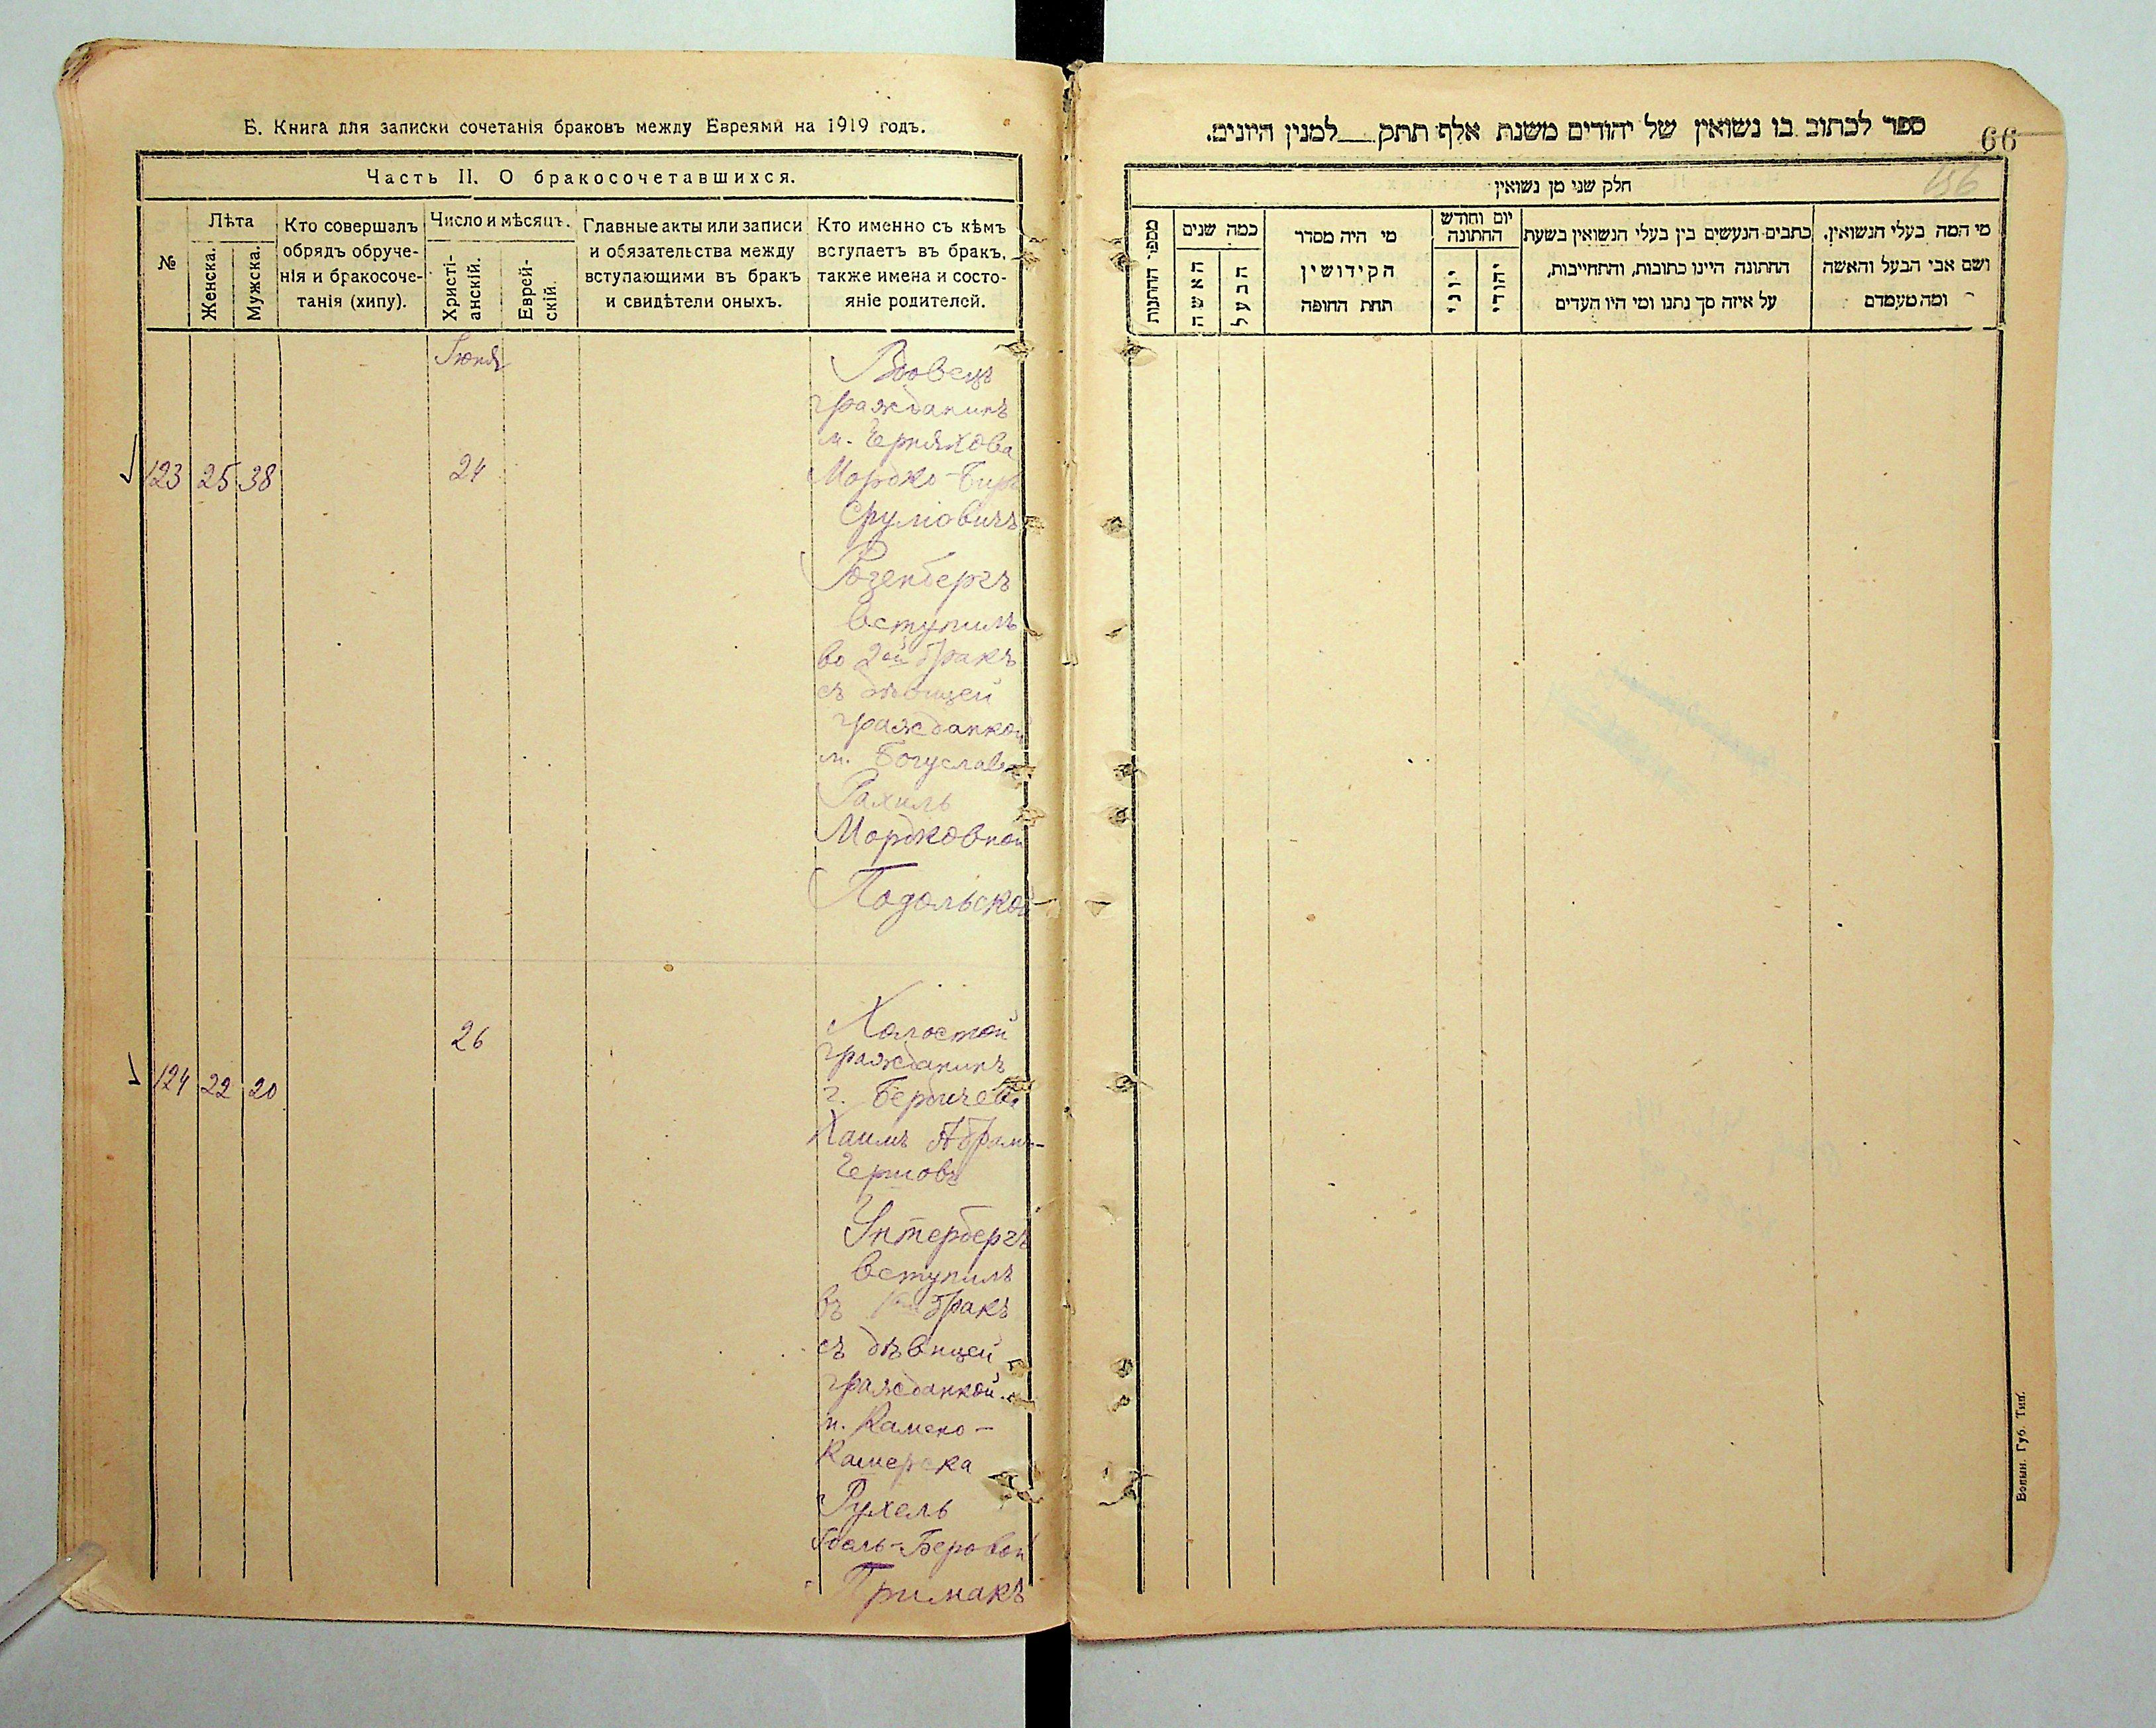 Б. Книга для записки сочетанія браковъ между Евреями на 1919 годъ.
Часть II. О бракосочетавшихся.
№
Лѣта
Женска.
Мужска.
Кто совершалъ
обрядъ обруче-
нія и бракосоче-
танія (хипу).
Число и мѣсяцъ.
Христі-
анскій.
Еврей-
скій.
Главные акты или записи
и обязательства между
вступающими въ бракъ
и свидѣтели оныхъ.
Кто именно съ кѣмъ
вступаетъ въ бракъ,
также имена и состо-
яніе родителей.
Вдовецъ
гражданинъ
м. Черняхова
123 25 38 24 Мордко-Бер
Срулiовичъ
Розенбергъ
вступилъ
во 2ой бракъ
съ дѣвицей
гражданкой
м. Богуслав
Рахиль
Мордковной
Подольской
26 Холостой
гражданинъ
124 22 20 г. Бердичева
Хаимъ Абрамъ-
Вступилъ
въ бракъ
съ дѣвицей
гражданкой
Рухель
Примакъ
ספר לכתוב בו נשואין של יהודים משנת אלף תתק__למנין היונים.
66
156
חלק שני מן נשואין
מספר החתונות
כמה שנים
האשה
הבעל
מי היה מסדר
הקידושין
תחת החופה
יום וחודש
החתונה
יוני
יהודי
כתבים הנעשים בין בעלי הנשואין בשעת
החתונה היינו כתובות, והתחייבות,
על איזה סך נתנו ומי היו העדים
מי המה בעלי הנשואין,
ושם אבי הבעל והאשה
ומה מעמדם
Волын. Губ. Тип.